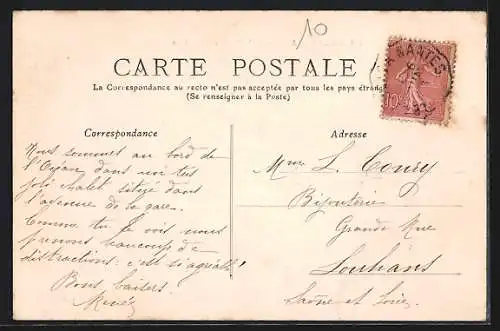 10
CARTE POSTALE
La Correspondance au recto n'est pas acceptée par tous les pays étrang
(Se renseigner à la Poste)
NANTES
10
Correspondance
Nous sommes au bord de
l'Océan dans un très
joli chalet situé dans
l'avenue de la gare.
Comme tu le vois nous
prenons beaucoup de
distractions: c'est si agréable!
Bons baisers.
Adresse
Mme L. Coury
Bijouterie
Grande Rue
Louhans
Saône et Loire